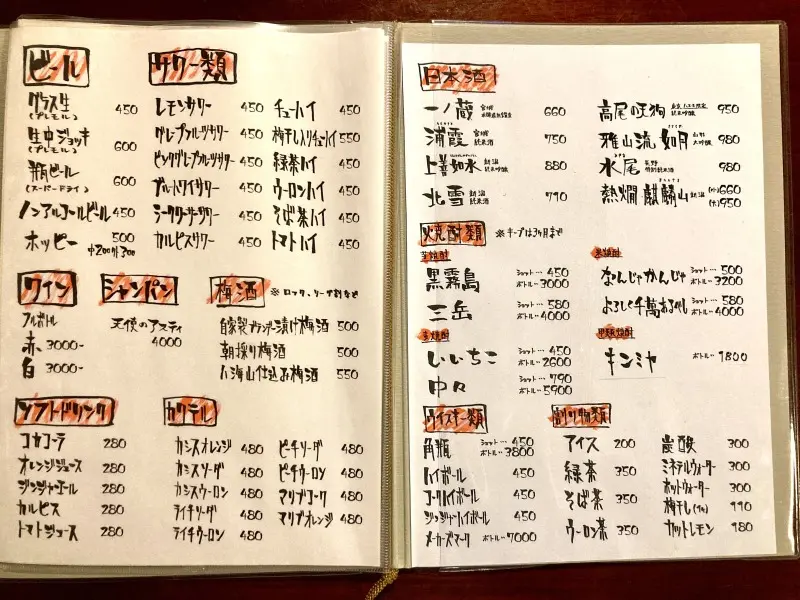 ビール
グラス生 450
(プレモル)
生中ジョッキ 600
(プレモル)
瓶ビール 600
(スーパードライ)
ノンアルコールビール 450
ホッピー 500
中200外300
サワー類
レモンサワー 450
グレープフルーツサワー 450
ピンクグレープフルーツサワー 450
ブルーハワイサワー 450
シークワーサーサワー 450
カルピスサワー 450
チューハイ 450
梅干し入りチューハイ 550
緑茶ハイ 450
ウーロンハイ 450
そば茶ハイ 450
トマトハイ 450
ワイン
フルボトル
赤 3000-
白 3000-
シャンパン
天使のアスティ
4000
梅酒 ※ロック、ソーダ割など
自家製ブランデー漬け梅酒 500
朝採り梅酒 500
八海山仕込み梅酒 550
ソフトドリンク
コカコーラ 280
オレンジジュース 280
ジンジャーエール 280
カルピス 280
トマトジュース 280
カクテル
カシスオレンジ 480
カシスソーダ 480
カシスウーロン 480
ライチソーダ 480
ライチウーロン 480
ピーチソーダ 480
ピーチウーロン 480
マリブコーク 480
マリブオレンジ 480
日本酒
一ノ蔵 宮城 660
浦霞 宮城 純米酒 750
上善如水 新潟 純米吟醸 880
北雪 新潟 純米酒 790
高尾の天狗 純米吟醸 950
雅山流 如月 山形 大吟醸 980
水尾 長野 特別純米酒 980
熱燗 麒麟山 新潟 (小)660
(大)950
焼酎類 ※キープは3ヶ月まで
芋焼酎
黒霧島 ショット… 450
ボトル… 3000
三岳 ショット… 580
ボトル… 4000
麦焼酎
いいちこ ショット… 450
ボトル… 2600
中々 ショット… 790
ボトル… 5900
米焼酎
なんじゃかんじゃ ショット… 500
ボトル… 3200
よろしく千萬あるべし ショット… 580
ボトル… 4000
甲類焼酎
キンミヤ ボトル… 1800
ウイスキー類
角瓶 ショット… 450
ボトル… 3800
ハイボール 450
コークハイボール 450
ジンジャーハイボール 450
メーカーズマーク ボトル… 7000
割り物類
アイス 200
緑茶 350
そば茶 350
ウーロン茶 350
炭酸 300
ミネラルウォーター 300
ホットウォーター 300
梅干し 110
カットレモン 180